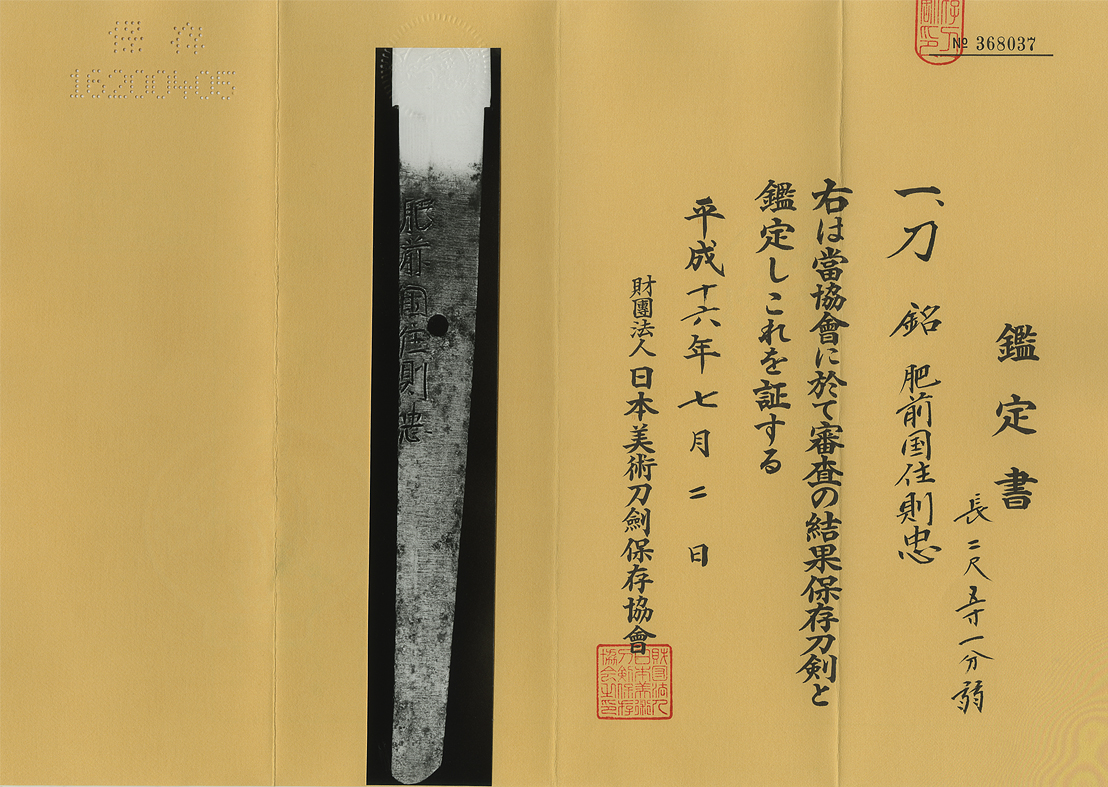 № 368037
鑑定書
長二尺五寸一分弱
一、刀 銘 肥前国住則忠
右は當協會に於て審査の結果保存刀剣と
鑑定しこれを証する
平成十六年七月二日
財團法人日本美術刀劍保存協會
財団法人
日本美術
刀剣保存
協会之印
肥前国住則忠
保存
16200405